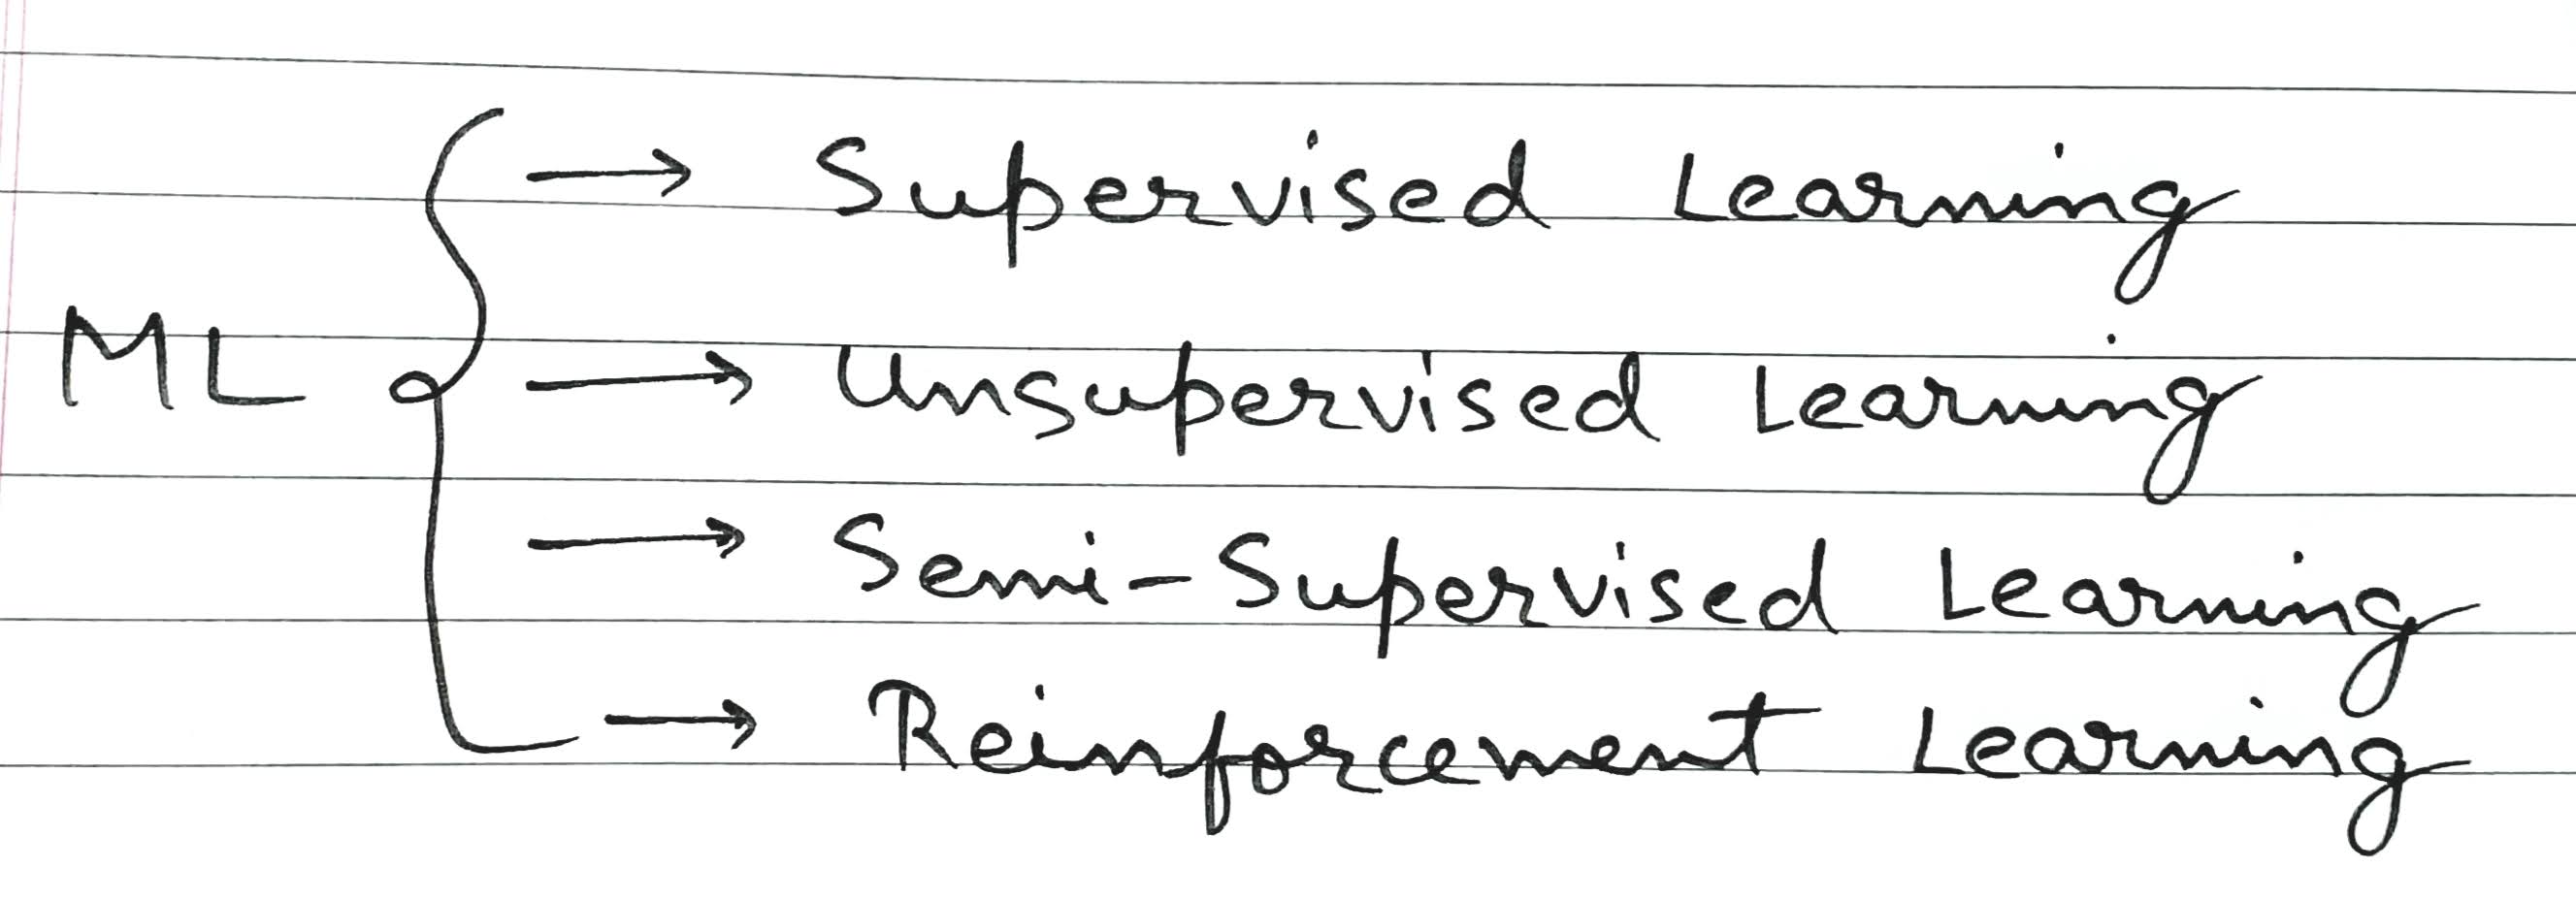 → Supervised Learning
ML → Unsupervised Learning
→ Semi-Supervised Learning
→ Reinforcement Learning